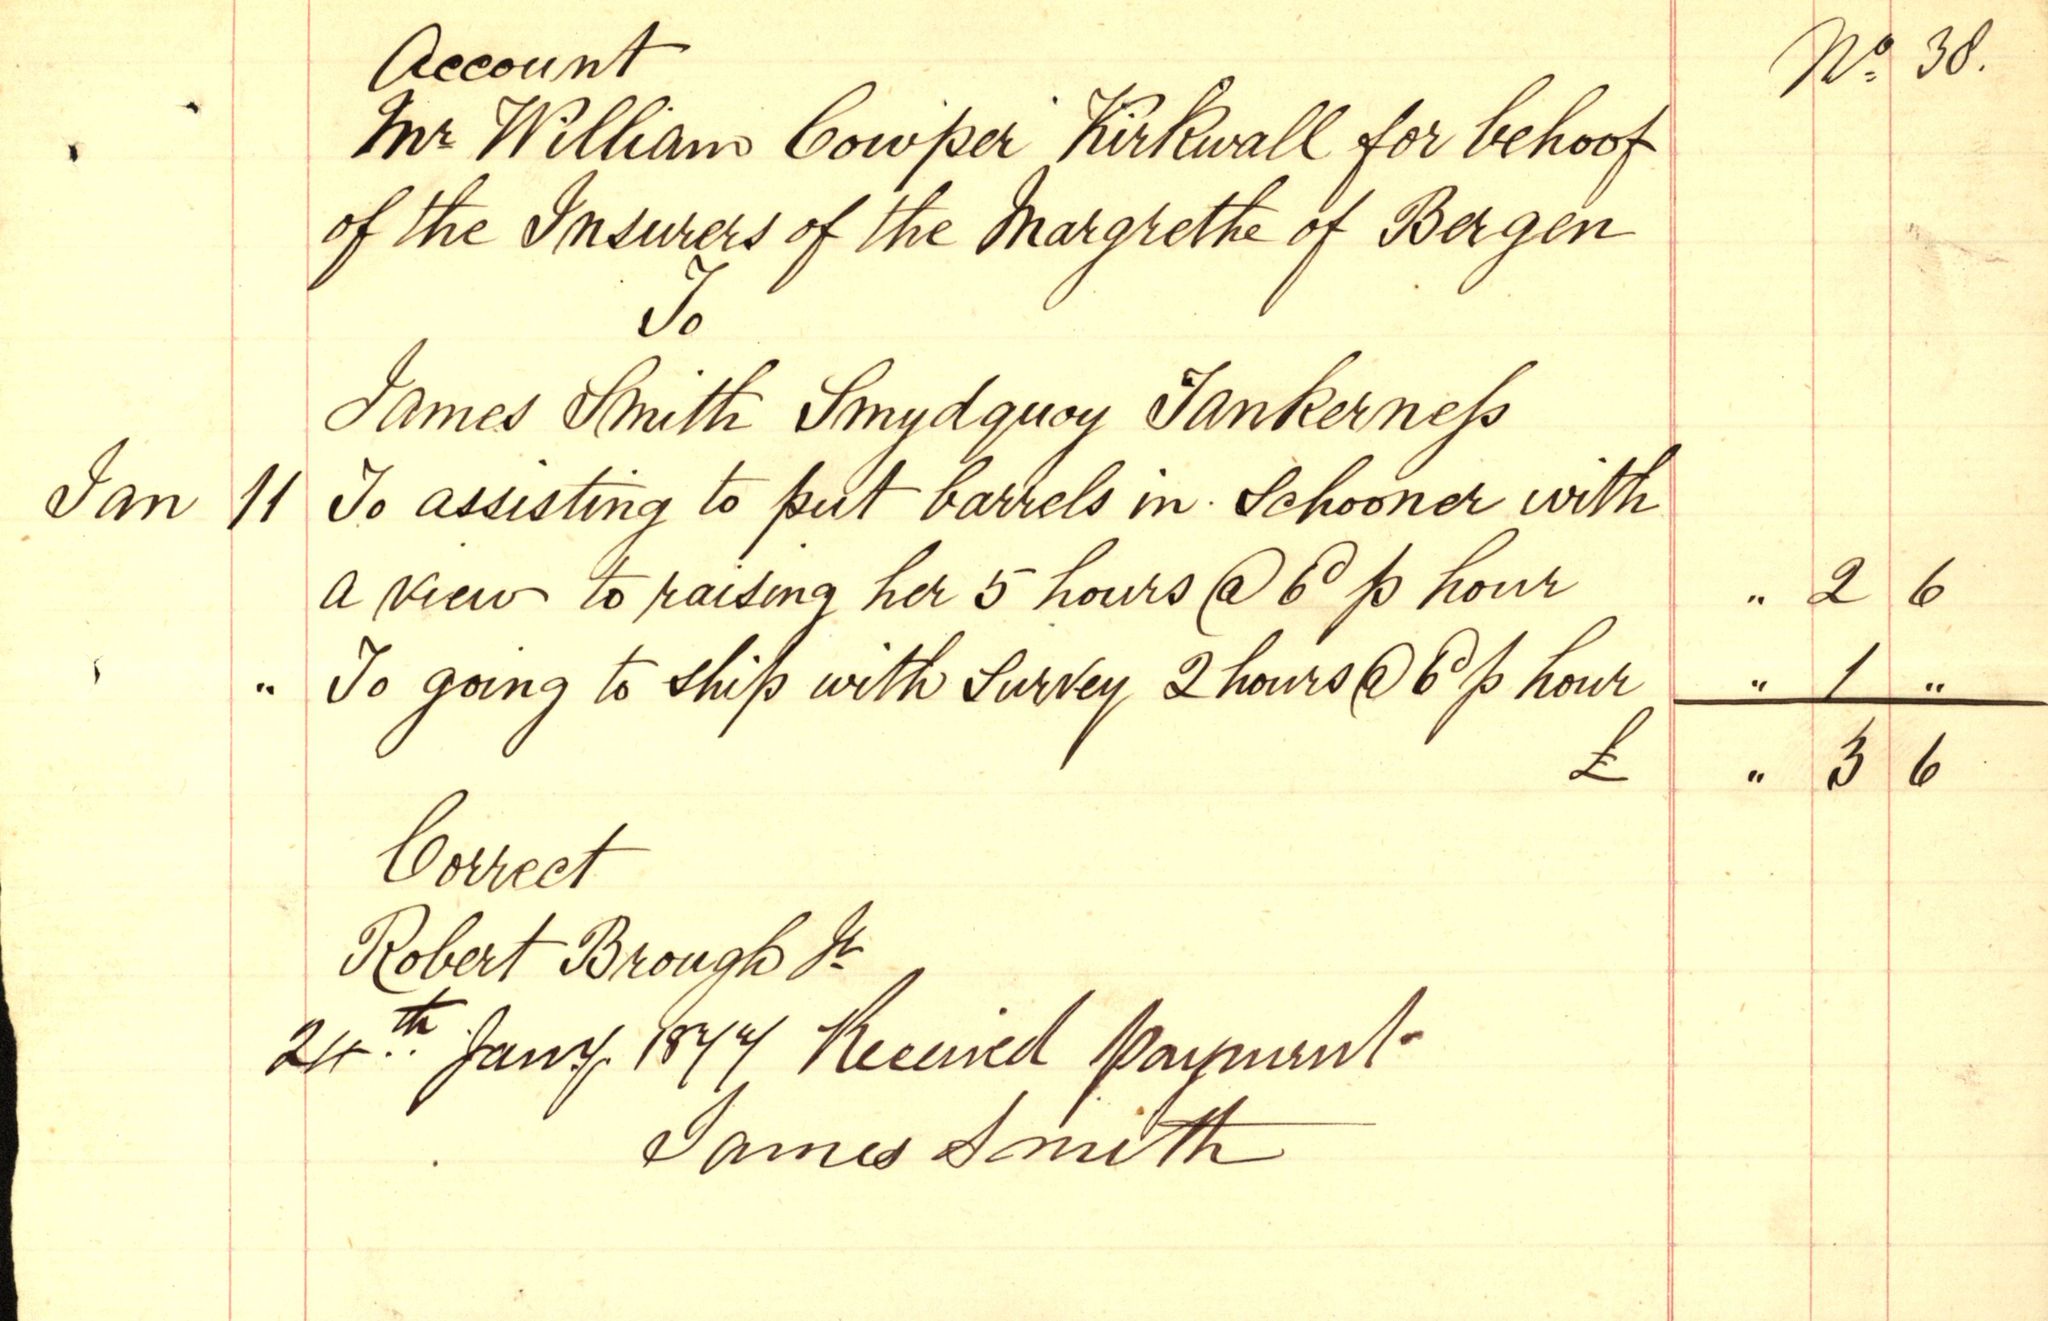 Account
No 38.
Mr William Cowper Kirkwall for behoof
of the Insurers of the Margrethe of Bergen
To
James Smith Smydquoy Tankerness
Jan 11 To assisting to put barrels in Schooner with
a view to raising her 5 hours @ 6d p hour " 2 6
" To going to ship with Survey 2 hours @ 6d p hour " 1 "
£ " 3 6
Correct
Robert Brough Jr
24th Jany. 1877 Received payment
James Smith